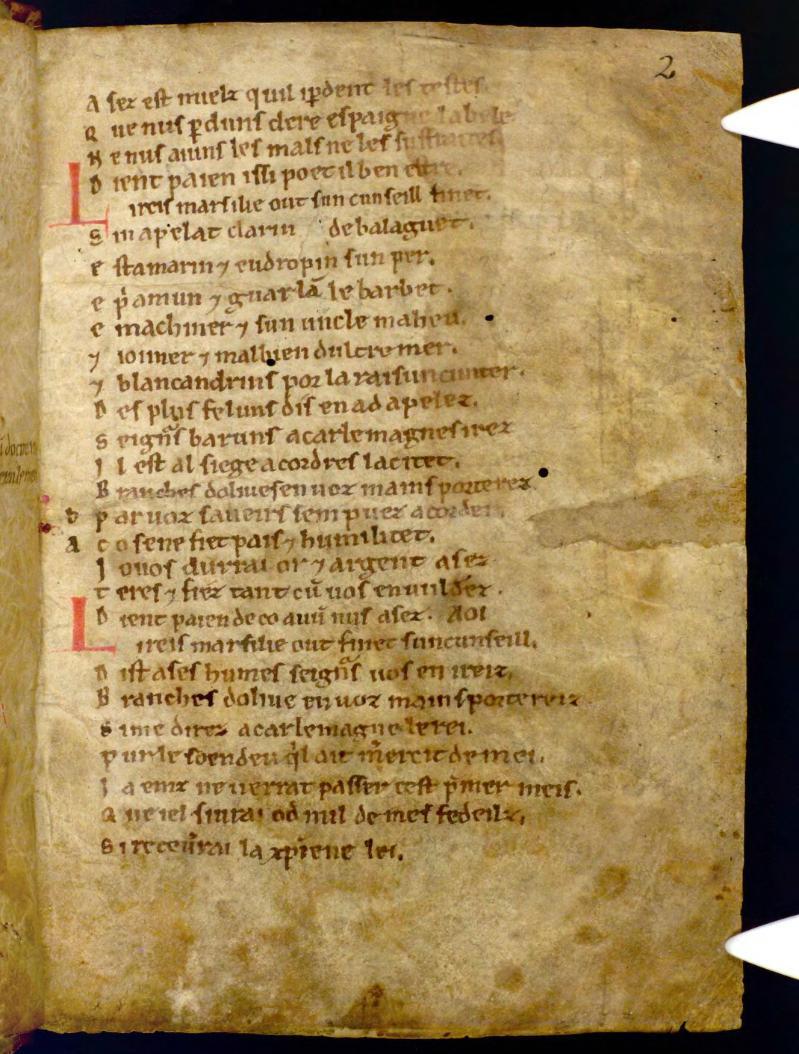 2
A sez est mielz quil ip̱dent les testes.
Q ue nus p̱duns clere espaigne la bele
N e nus aiuns les mals ne les suffraites
D ient paien issi poet il ben estre.
L ireis marsilie out sun cunseill finet.
S in apelat clarin de balaguet.
E stamarin ⁊ eudropin sun per.
E p̉amun ⁊ guarlā le barbet.
E machiner ⁊ sun uncle maheu.
⁊ ioüner ⁊ malbien dultremer.
⁊ blancandrins por la raisun cunter.
D es plus feluns dis en ad apelez.
S eignr̄s baruns a carlemagnes irez
I l est al siege a cordres la citet.
B ranches doliues en uoz mains porterez
P ar uoz saueirs sem puez acorder.
C o senefiet pais ⁊ humilitet.
J o uos durrai or ⁊ argent asez
T eres ⁊ fiez tant cū uos en uuldrez.
D ient paien de co auū nus asez. Aoi
L ireis marsilie out finet sun cunseill.
D ist a ses humes seignr̄s uos en ireiz.
B ranches doliue en uoz mains portereiz
S i me direz a carlemagne le rei.
P ur le soen deu ql ait m̄ercit de mei.
J a einz ne uerrat passer cest p̉mer meis.
Q ue iel siurai od mil de mes fedeilz,
S i receurai la xp̄iene lei.